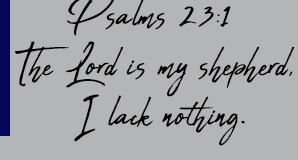 Psalms 23:1
The Lord is my shepherd,
I lack nothing.